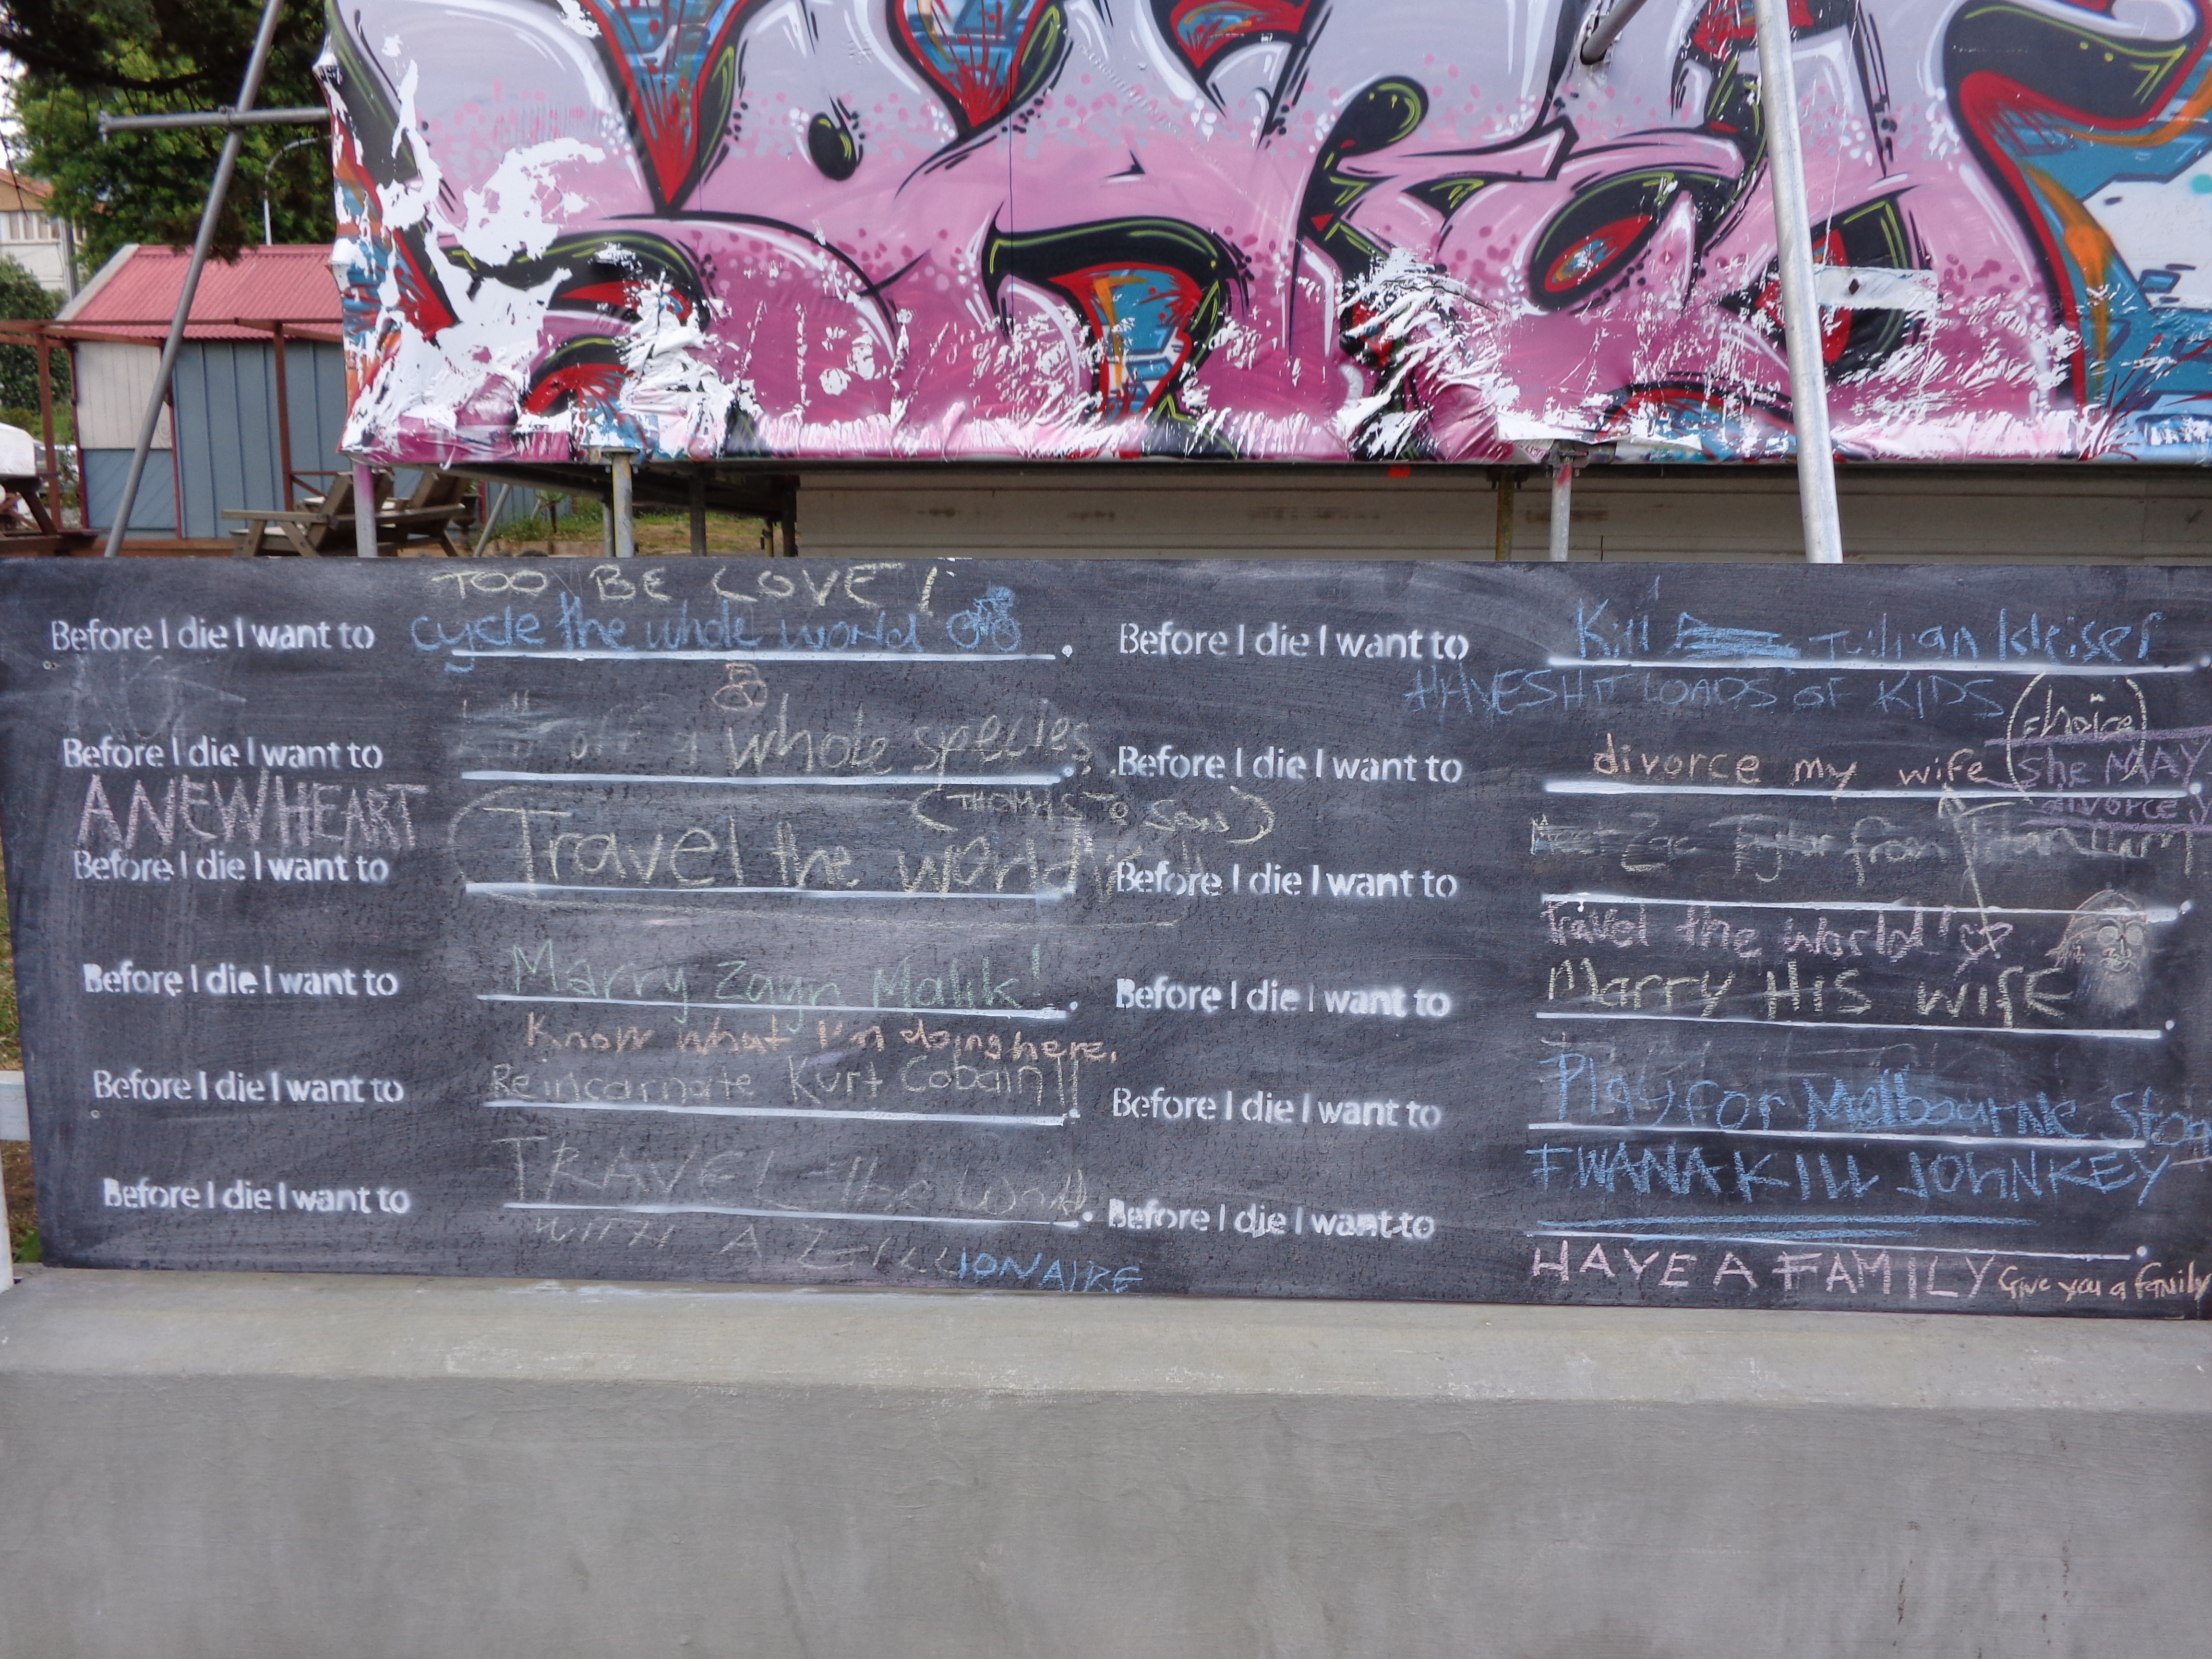 TOO BE LOVE!
Before I die I want to cycle the whole world.
Before I die I want to whole species.
A NEW HEART
(THOMAS TO SAM)
Before I die I want to (Travel the world
Before I die I want to Marry Zayn Malik!.
Know what I'm doing here.
Before I die I want to Reincarnate Kurt Cobain!!.
Before I die I want to TRAVEL the World.
WITH A ZILLIONAIRE
Before I die I want to Kill Julian kleiser.
HAVE SHIT LOADS OF KIDS
(choice)
Before I die I want to divorce my wife (she MAY.
divorce
Before I die I want to from.
Travel the world!
Before I die I want to Marry HiS wiFE.
Before I die I want to Play for Melbourne Storm
I WANA KILL JOHN KEY
Before I die I want to.
HAVE A FAMILY Give you a family